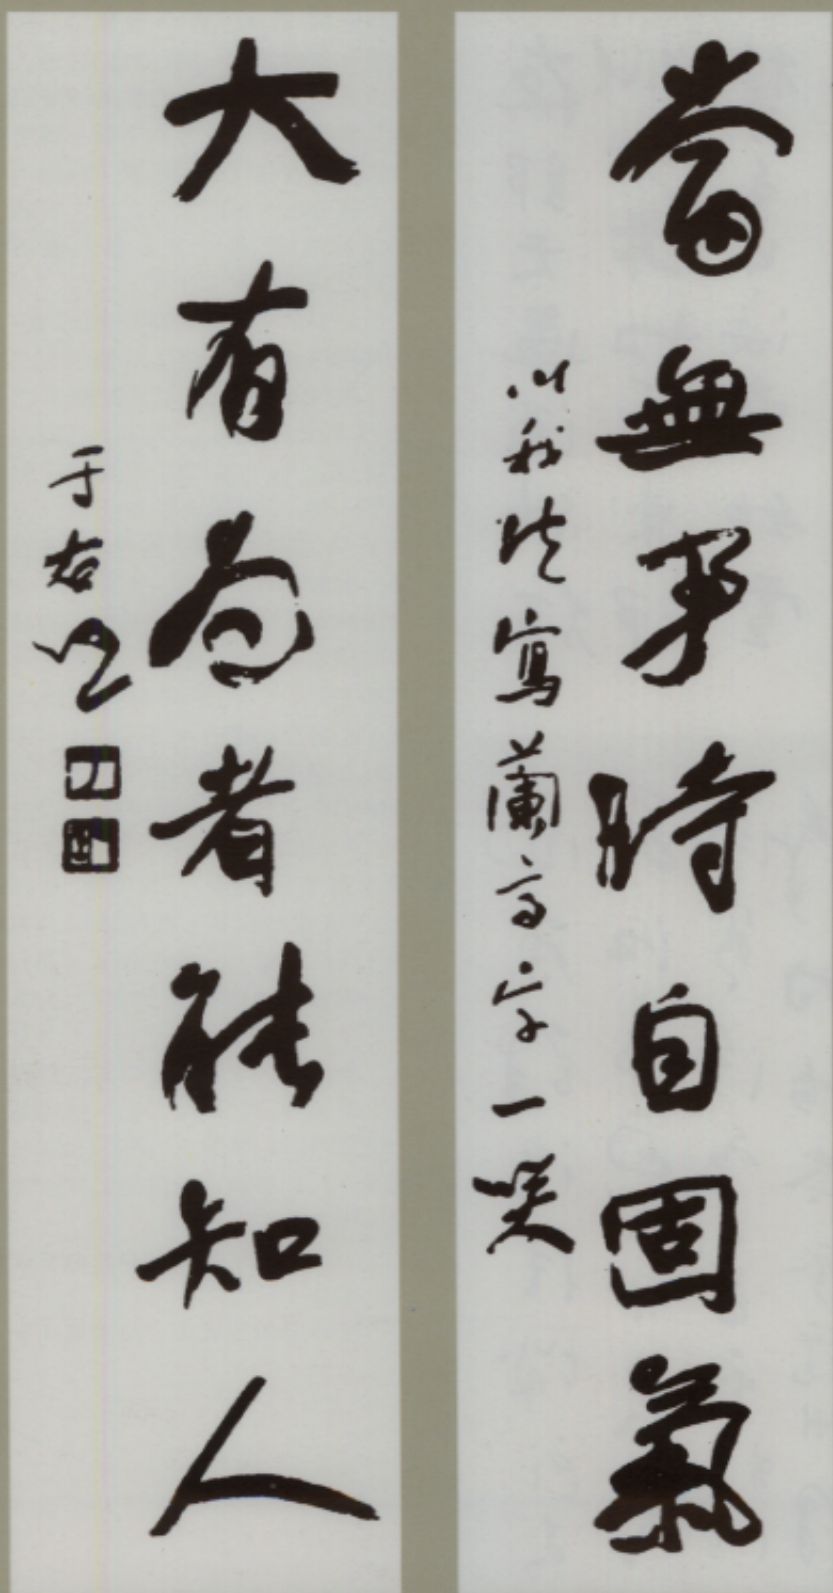 當無事時自固氣
以我法寫蘭亭字一笑
大有為者能知人
于右任